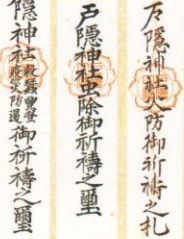 戸隠神社火防御祈禱之札
戸隠神社虫除御祈禱之璽
隠神社
穀蠶豊登
疫災防遏
御祈禱之璽